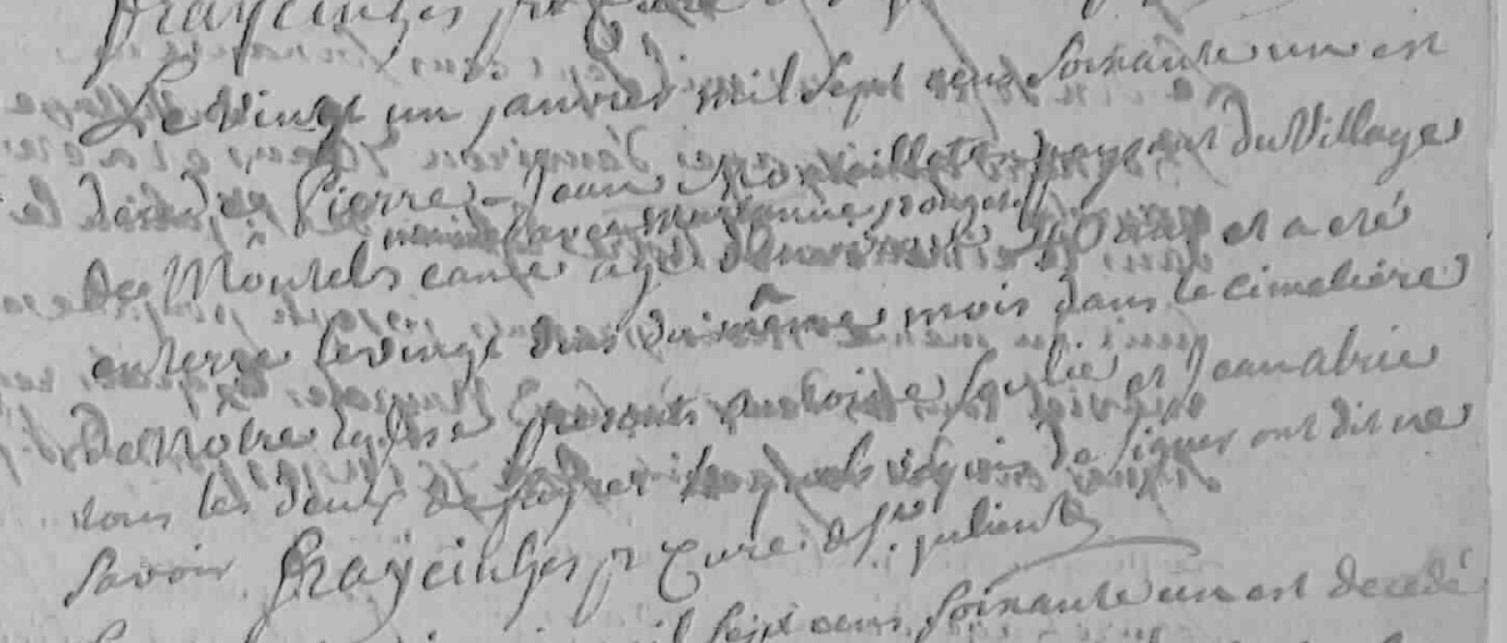 fraÿcinhes pr Curé
Le vingt un janvier mil sept cens soixante un est
décédé Pierre-Jean païsant du village
marianne
de Moutels âgé d'environ et a eté
enterré le vingt deux du même mois dans le cimetière
de Notre Eglise présents antoine et Jean abrie
tous les deux de lesquels requis de signer ont dit ne
savoir. fraÿcinhes pr Curé de St. julien
mil sept cens soixante un est decedé